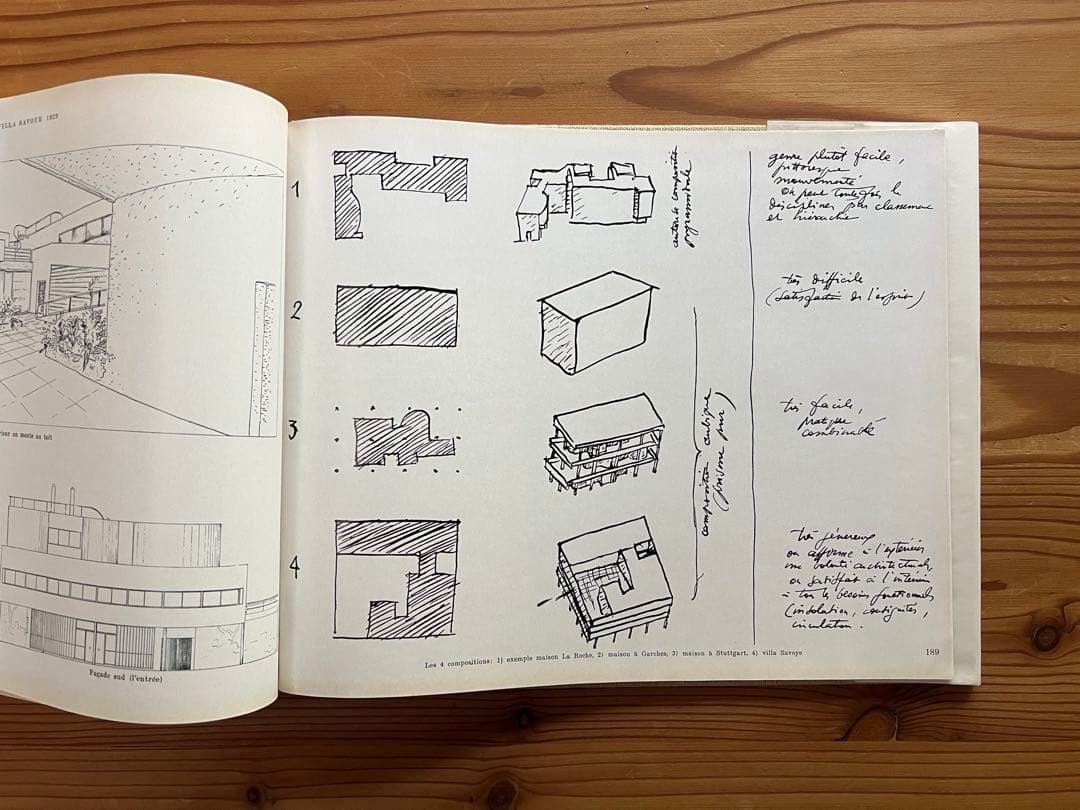 VILLA SAVOYE 1929
Façade sud (l'entrée)
1
2
3
4
composition
pyramidale
composition cubique
(prisme pur)
genre plutôt facile,
pittoresque
mouvementé
on peut toutefois le
discipliner par classement
et hiérarchie
très difficile
(satisfaction de l'esprit)
très facile,
pratique
combinable
très généreux
on affirme à l'extérieur
une volonté architecturale,
on satisfait à l'intérieur
à tous les besoins fonctionnels
(insolation, contiguités,
circulation.
Les 4 compositions: 1) exemple maison La Roche, 2) maison à Garches, 3) maison à Stuttgart, 4) villa Savoye
189